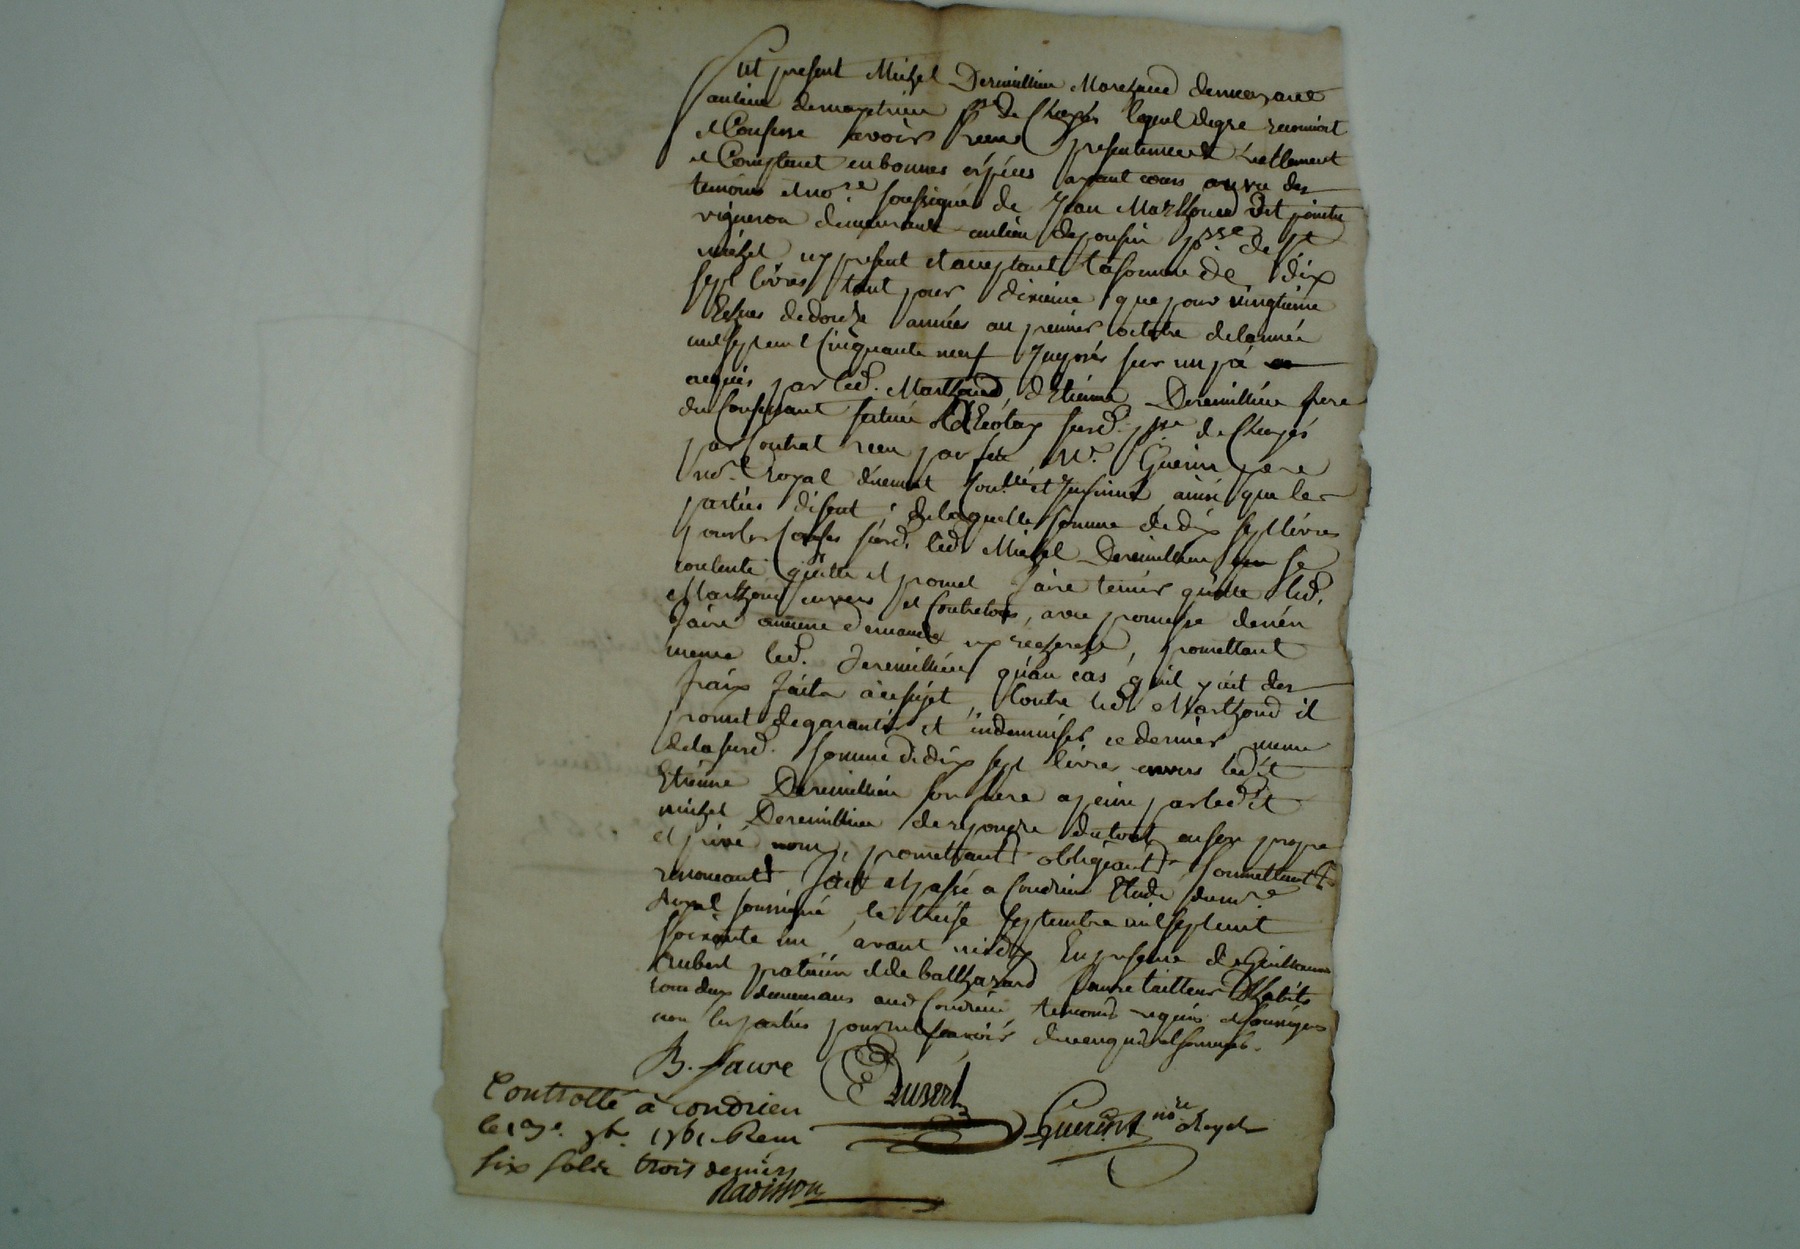 Fut present Michel Deremillieu Marchand demeurant
au lieu de p.sse de Chuyés lequel de gre reconnoit
et Confesse avoir recu presentement réellement
et Comptant en bonnes espéces ayant cours au vu des
temoins et no.re soussigné de Jean Marthoud dit
vigneron demeurant au lieu de p.sse de S.t
michel icy present et acceptant la somme de dix
sept livres tant pour dixieme que pour vingtieme
Echus de douze années au premier octobre de l'année
mil sept cent Cinquante neuf Imposés sur un pré
acquis par led. Marthoud d'Etienne Deremillieu frere
du Confessant situé susd. p.sse de Chuyés
par Contrat recu par M.e Guerin pere
no.re Royal düement Contr.llé et Insinué ainsi que les
parties disent, de laquelle somme de dix sept livres
pour les causes susd. led. Michel Deremillieu se
contente quitte et promet faire tenir quitte led.
Marthoud envers et Contre tous, avec promesse de n'en
faire aucune demande ny recherche, promettant
meme led. Deremillieu qu'au cas qu'il y ait des
fraix faits à ce sujet Contre led. Marthoud il
promet de garantir et indemniser ce dernier meme
de la susd. somme de dix sept livres envers ledit
Etienne Deremillieu son frere a peine par ledit
michel Deremillieu de repondre du tout en son propre
et privé nom, promettant obligeant soumettant
renoncant fait et passé a Condrieu Etude du no.re
Royal soussigné le treise septembre mil sept cent
soixante un avant midy En presence de Guillaume
patissier et de balthazard faure tailleur d'habits
tous deux demeurans aud. Condrieu temoins requis et soussignés
non les parties pour ne scavoir de ce enquis et sommés.
B. faure
Guerin no.re Royal
Controllé à Condrieu
le 7b. 1761 Recu
six sols trois deniers
Radisson